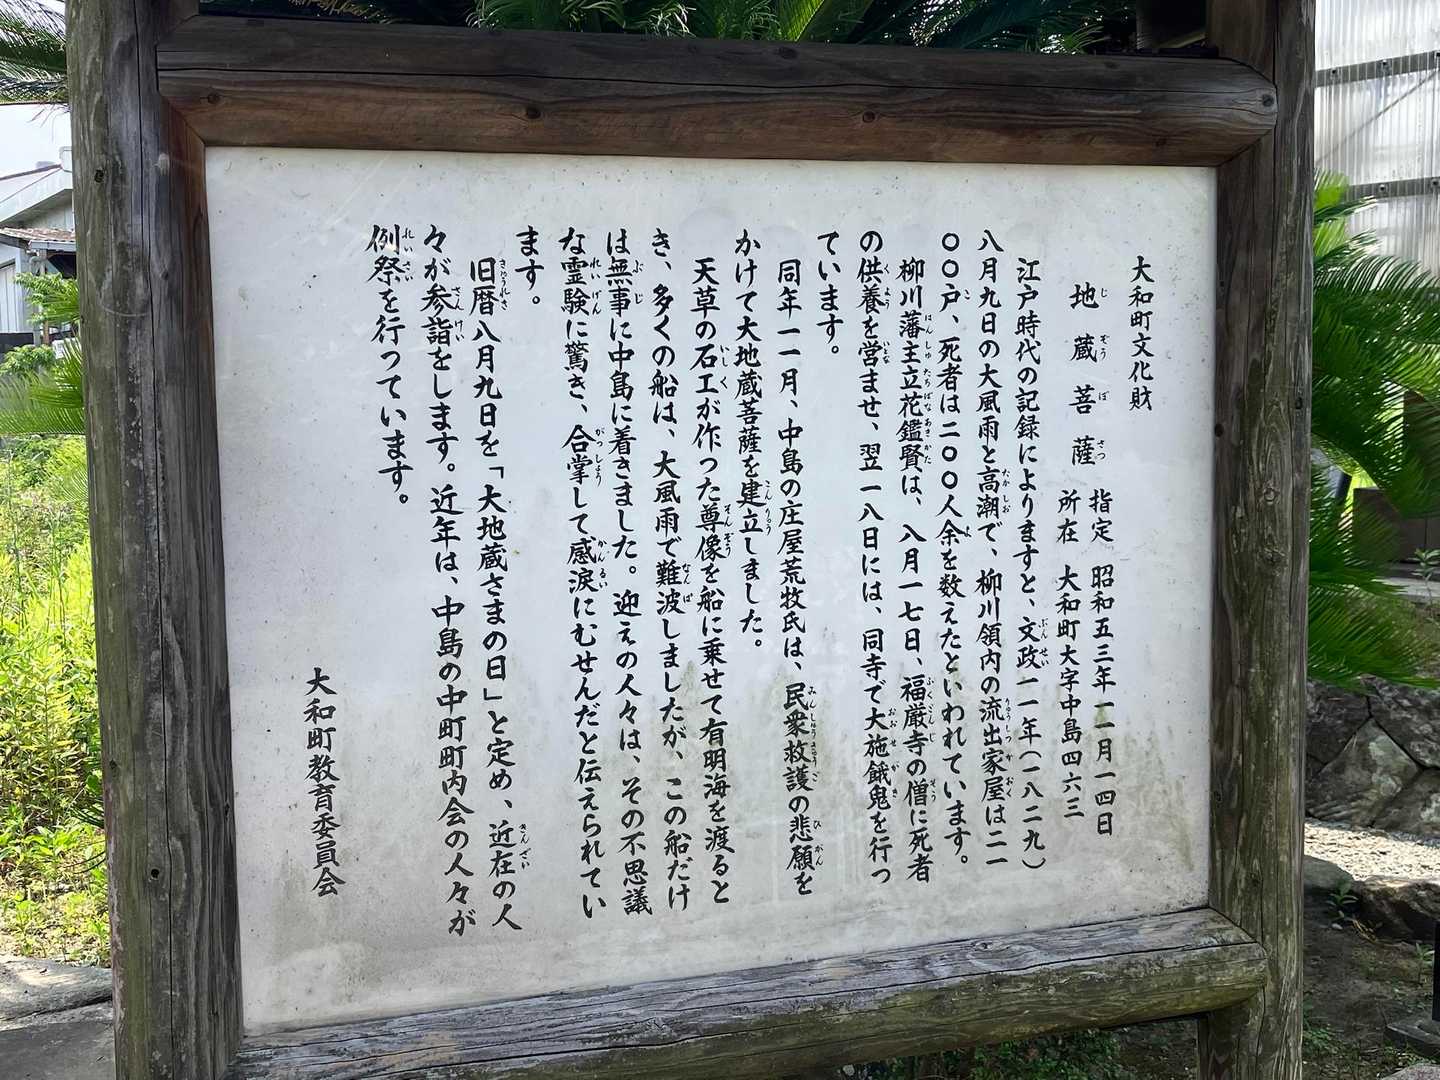 大和町文化財
地蔵菩薩
指定 昭和五三年一一月一四日
所在 大和町大字中島四六三
江戸時代の記録によりますと、文政一一年(一八二九)
八月九日の大風雨と高潮で、柳川領内の流出家屋は二一
〇〇戸、死者は二〇〇人余を数えたといわれています。
柳川藩主立花鑑賢は、八月一七日、福厳寺の僧に死者
の供養を営ませ、翌一八日には、同寺で大施餓鬼を行っ
ています。
同年一一月、中島の庄屋荒牧氏は、民衆救護の悲願を
かけて大地蔵菩薩を建立しました。
天草の石工が作った尊像を船に乗せて有明海を渡ると
き、多くの船は、大風雨で難波しましたが、この船だけ
は無事に中島に着きました。迎えの人々は、その不思議
な霊験に驚き、合掌して感涙にむせんだと伝えられてい
ます。
旧暦八月九日を「大地蔵さまの日」と定め、近在の人
々が参詣をします。近年は、中島の中町町内会の人々が
例祭を行っています。
大和町教育委員会